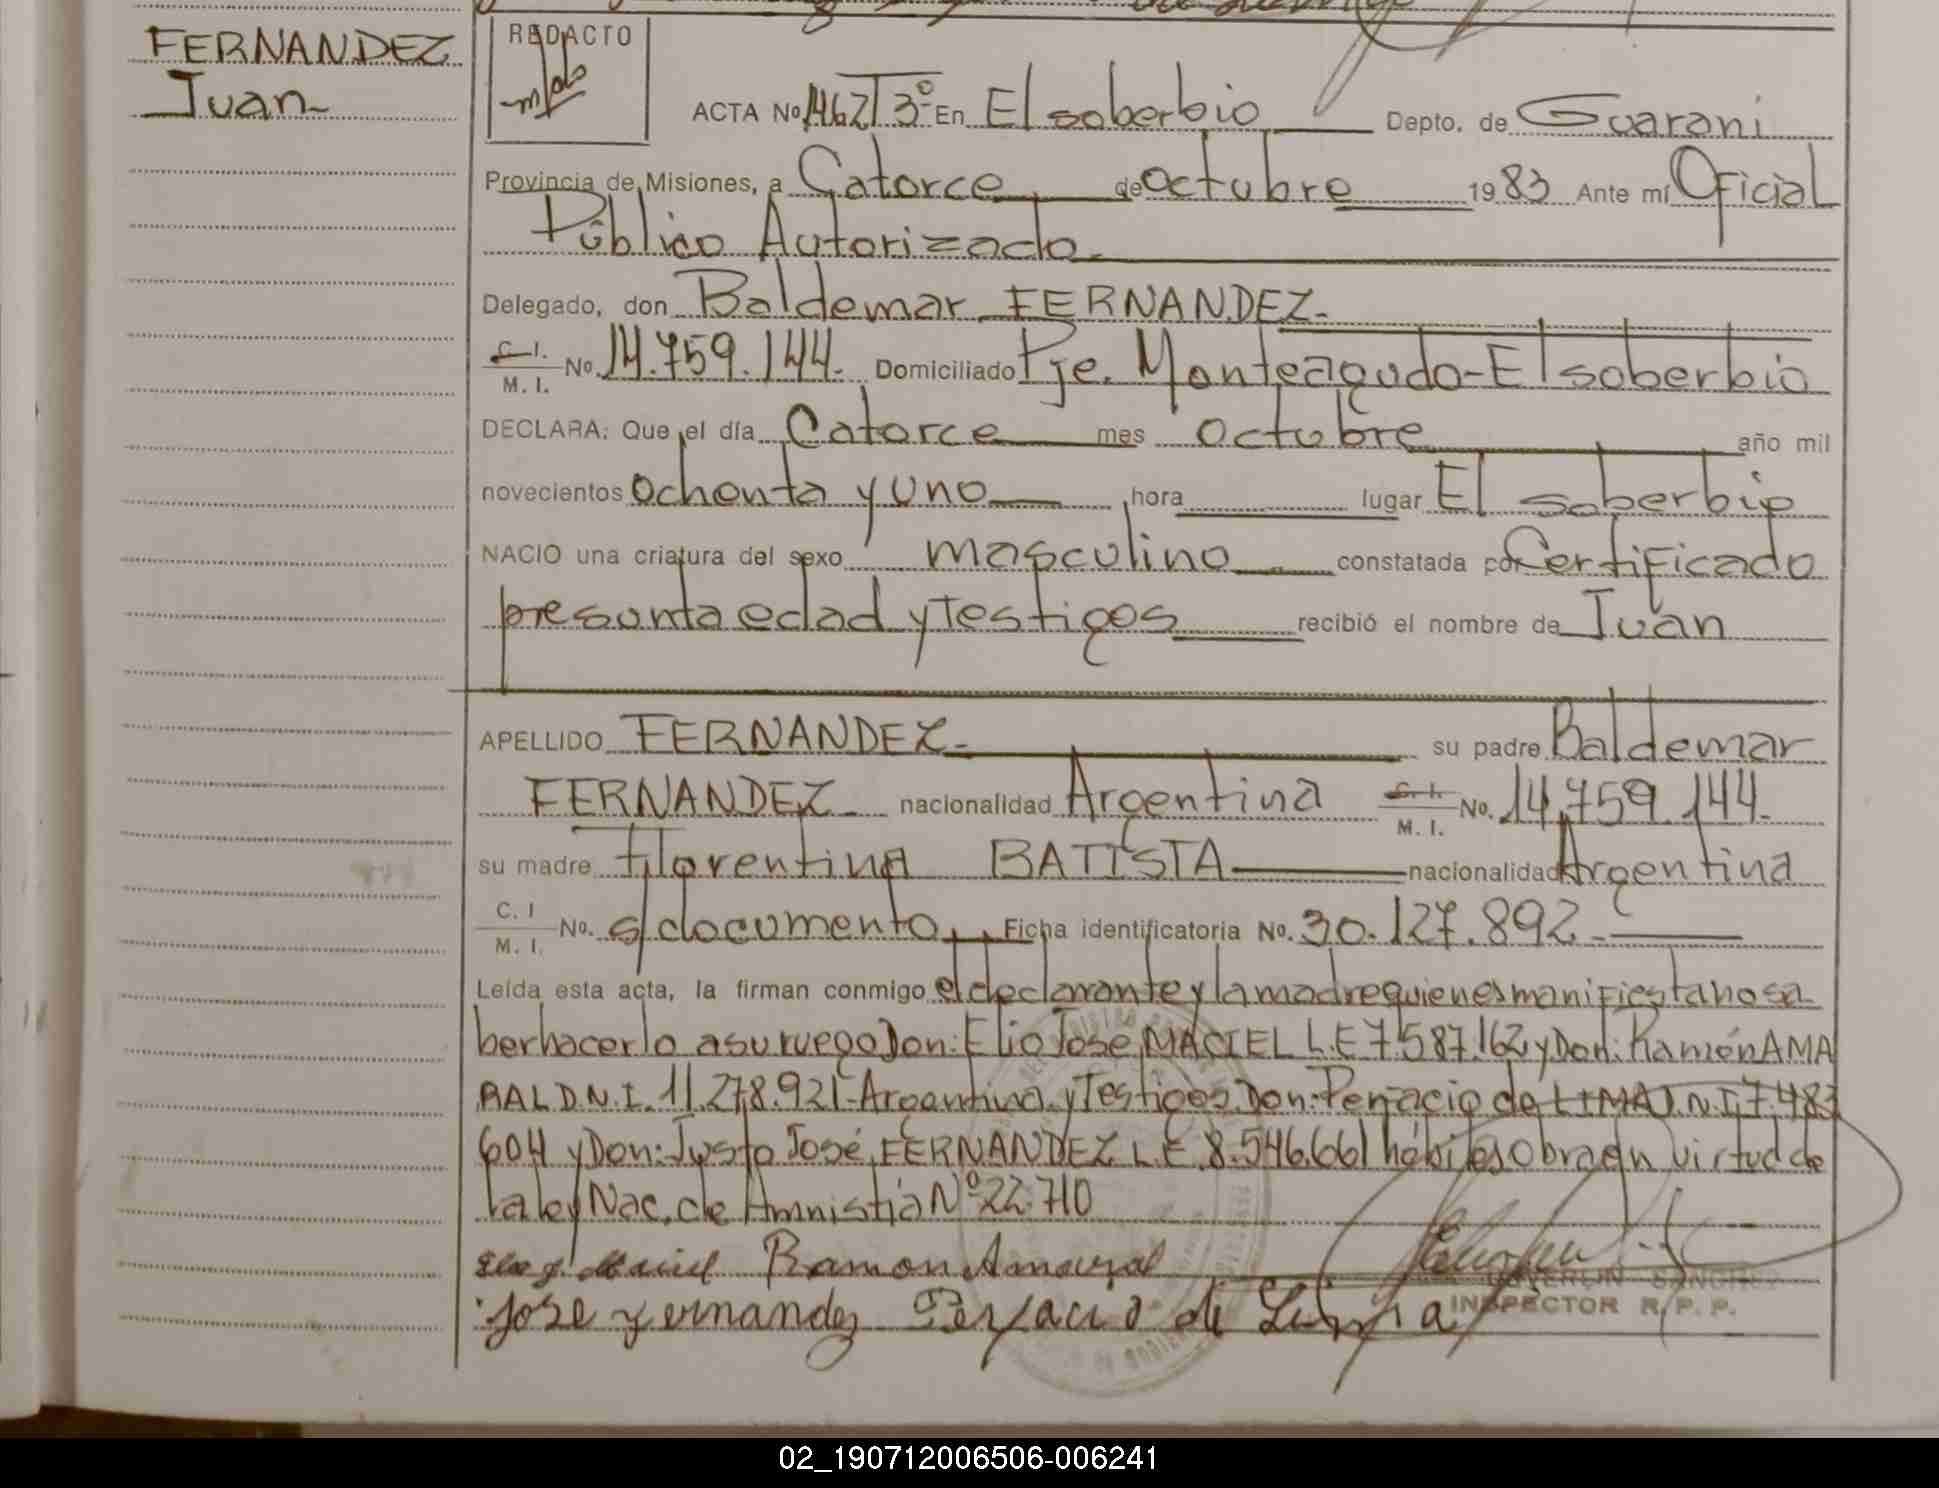 FERNANDEZ
Juan-
REDACTO
ACTA No 1462 T 3º En El soberbio Depto. de Guarani
Provincia de Misiones, a Catorce de octubre 1983 Ante mí Oficial
Público Autorizado.
Delegado, don Baldemar FERNANDEZ.
C.I. / M.I. No. 14.759.144. Domiciliado Pje. Monteagudo-El soberbio
DECLARA: Que el día Catorce mes octubre año mil
novecientos ochenta y uno hora lugar El soberbio
NACIO una criatura del sexo masculino constatada por Certificado
presunta edad y Testigos recibió el nombre de Juan
APELLIDO FERNANDEZ- su padre Baldemar
FERNANDEZ- nacionalidad Argentina C.I. / M.I. No. 14.759.144.
su madre Florentina BATISTA nacionalidad Argentina
C.I / M.I. No. s/documento, Ficha identificatoria No. 30.127.892-
Leída esta acta, la firman conmigo el declarante y la madre quienes manifiesta no sa
ber hacerlo a su ruego Don: Elio José MACIEL L.E 7.587.162 y Don: Ramón AMA
RAL D.N.I. 11.278.921-Argentina y Testigos Don: Perjacio de LIMA D.N.I 7.483
604 y Don: Justo José FERNANDEZ L.E. 8.546.661 hábiles obra en virtud de
la ley Nac. de Amnistia Nº 22.710
Ramon Amaral
Jose Fernandez Perjacio de Lima
SANCHEZ
INSPECTOR R. P. P.
02_190712006506-006241